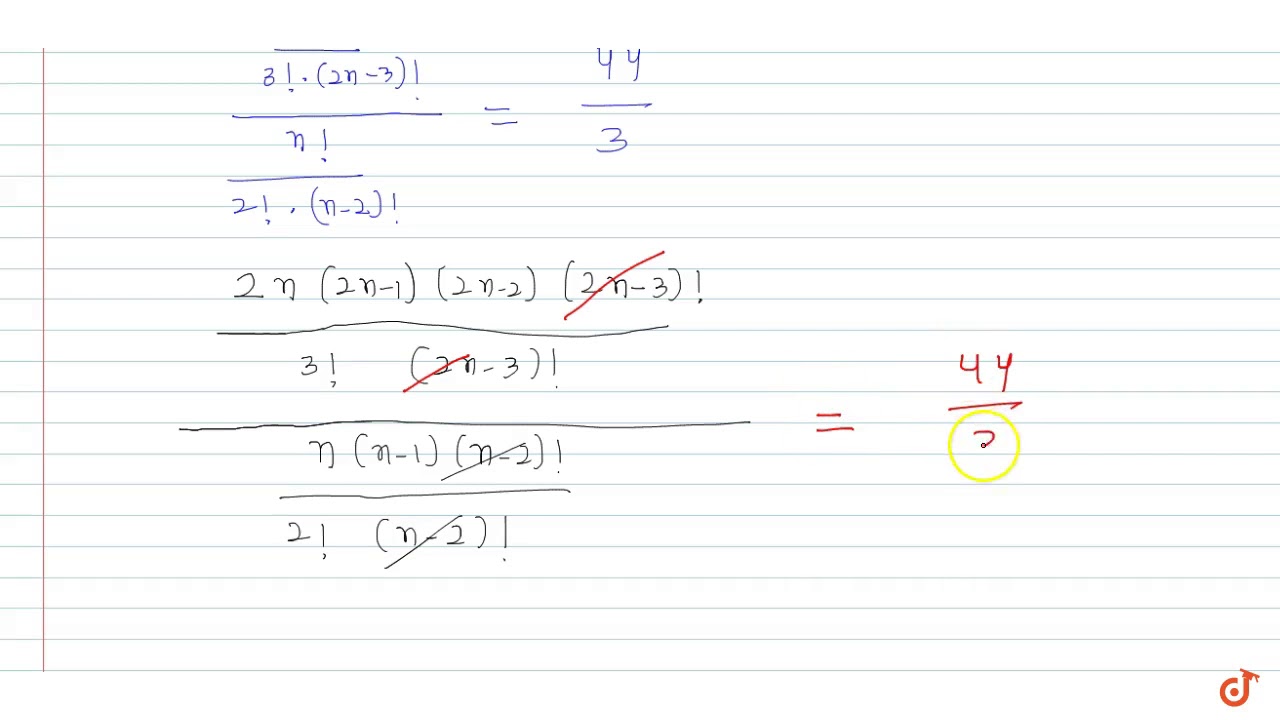 3! · (2n-3)!
n!
2! · (n-2)!
= 44
3
2n (2n-1) (2n-2) (2n-3)!
3! (2n-3)!
n (n-1) (n-2)!
2! (n-2)!
= 44